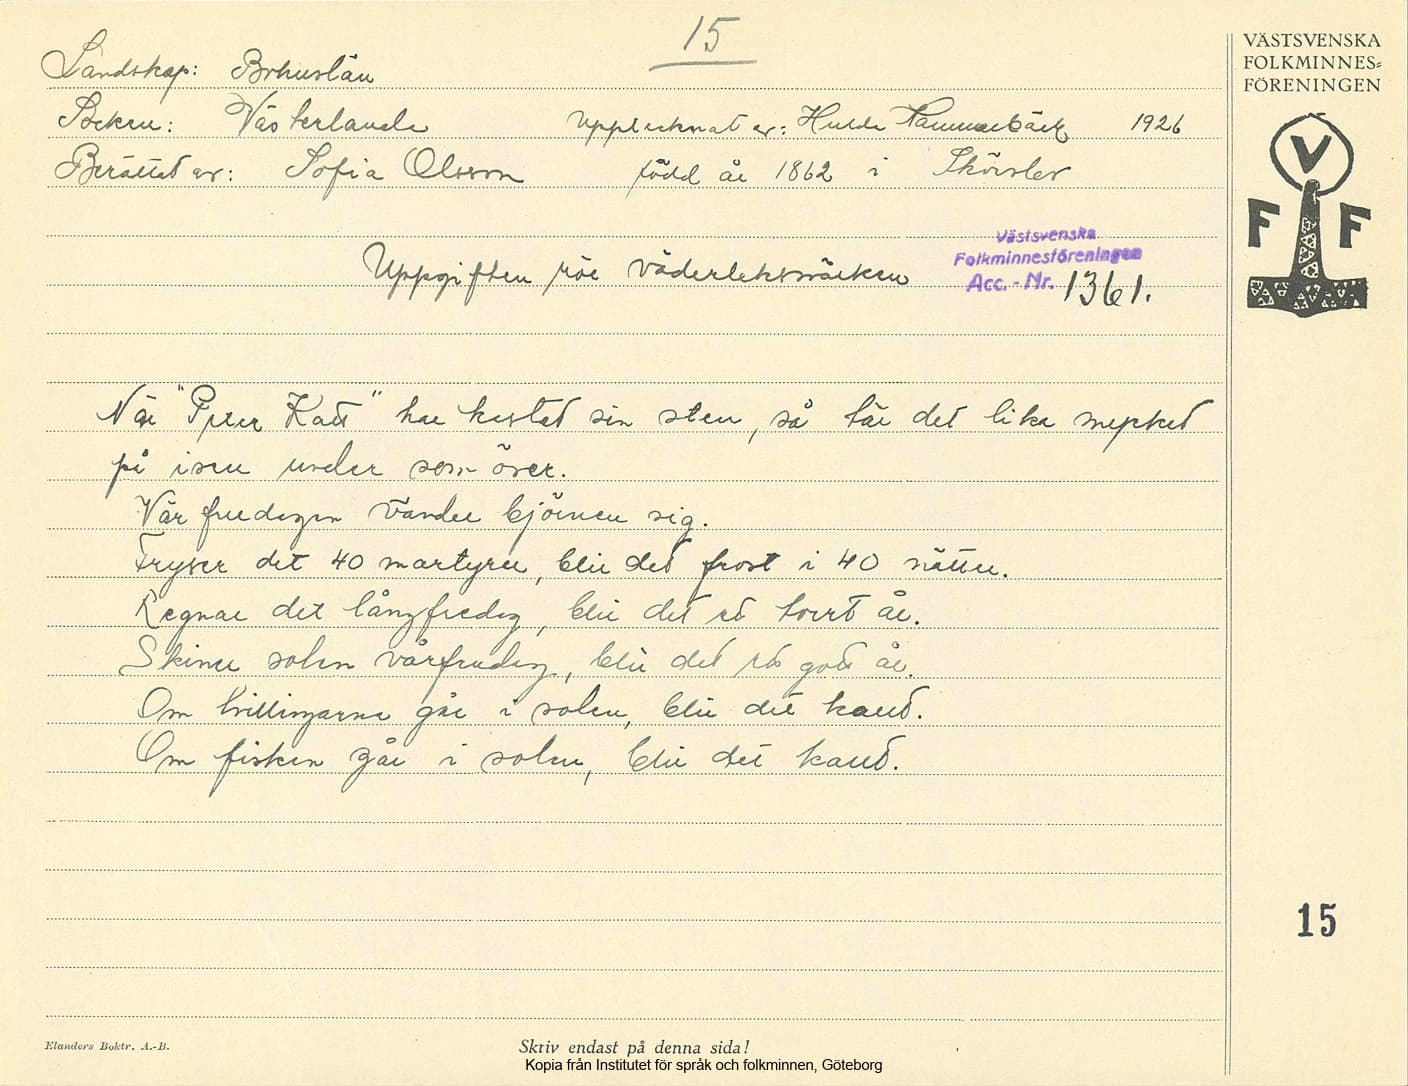 15
VÄSTSVENSKA
FOLKMINNES=
FÖRENINGEN
Landskap: Bohuslän
Socken: Västerlanda Upptecknat av: Hulda Hammarbäck 1926
Berättat av: Sofia Olsson född år 1862 i Skörslev
V
F F
Västsvenska
Folkminnesföreningen
Acc. - Nr. 1361.
Uppgiften rör väderleksmärken
När "Peter Katt" har kastat sin sten, så tär det lika mycket
på isen under som över.
Vår fredagen vänder björnen sig.
Fryser det 40 martyrer, blir det frost i 40 nätter.
Regnar det långfredag, blir det ett torrt år.
Skiner solen vårfrudag, blir det ett gott år.
Om tvillingarna går i solen, blir det kallt.
Om fisken går i solen, blir det kallt.
15
Elanders Boktr. A.-B.
Skriv endast på denna sida!
Kopia från Institutet för språk och folkminnen, Göteborg